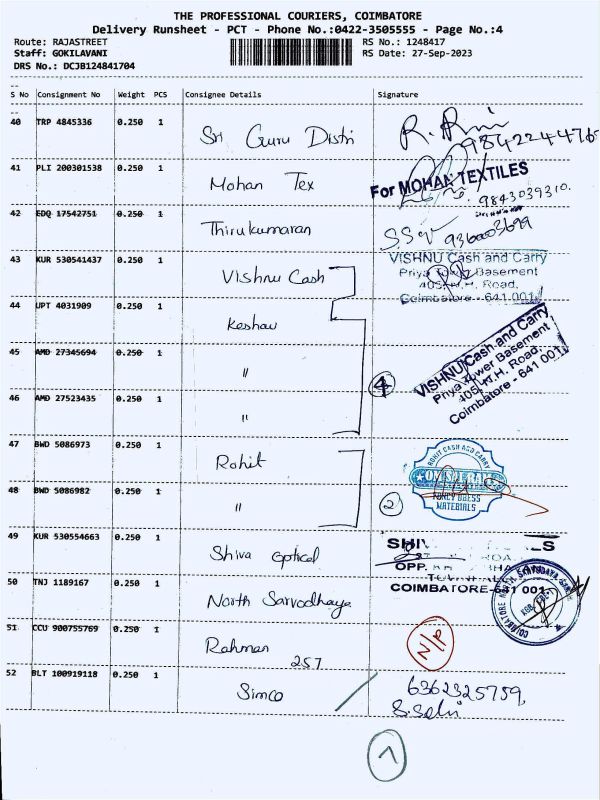 THE PROFESSIONAL COURIERS, COIMBATORE
Delivery Runsheet - PCT - Phone No.:0422-3505555 - Page No.:4
Route: RAJASTREET RS No.: 1248417
Staff: GOKILAVANI RS Date: 27-Sep-2023
DRS No.: DCJB124841704
S No Consignment No Weight PCS Consignee Details Signature
40 TRP 4845336 0.250 1 Sri Guru Distri
9842244765
41 PLI 200301538 0.250 1 Mohan Tex For MOHAN TEXTILES
9843039310.
42 EDQ 17542751 0.250 1 Thirukumaran
43 KUR 530541437 0.250 1 Vishnu Cash VISHNU Cash and Carry
Priya Tower Basement
405, H.H. Road,
Coimbatore - 641 001
44 UPT 4031909 0.250 1 Keshav VISHNU Cash and Carry
Priya Tower Basement,
405, H.H. Road,
Coimbatore - 641 001
45 AMD 27345694 0.250 1 "
4
46 AMD 27523435 0.250 1 "
47 BWD 5086973 0.250 1 Rohit ROHIT CASH AND CARRY
FANCY DRESS
MATERIALS
48 BWD 5086982 0.250 1 " 2
49 KUR 530554663 0.250 1 Shiva optical
OPP.
COIMBATORE-641 001
50 TNJ 1189167 0.250 1 North Sarvodhaya
51 CCU 900755769 0.250 1 Rahman 257 N/P
52 BLT 100919118 0.250 1 Simco 6362325759,